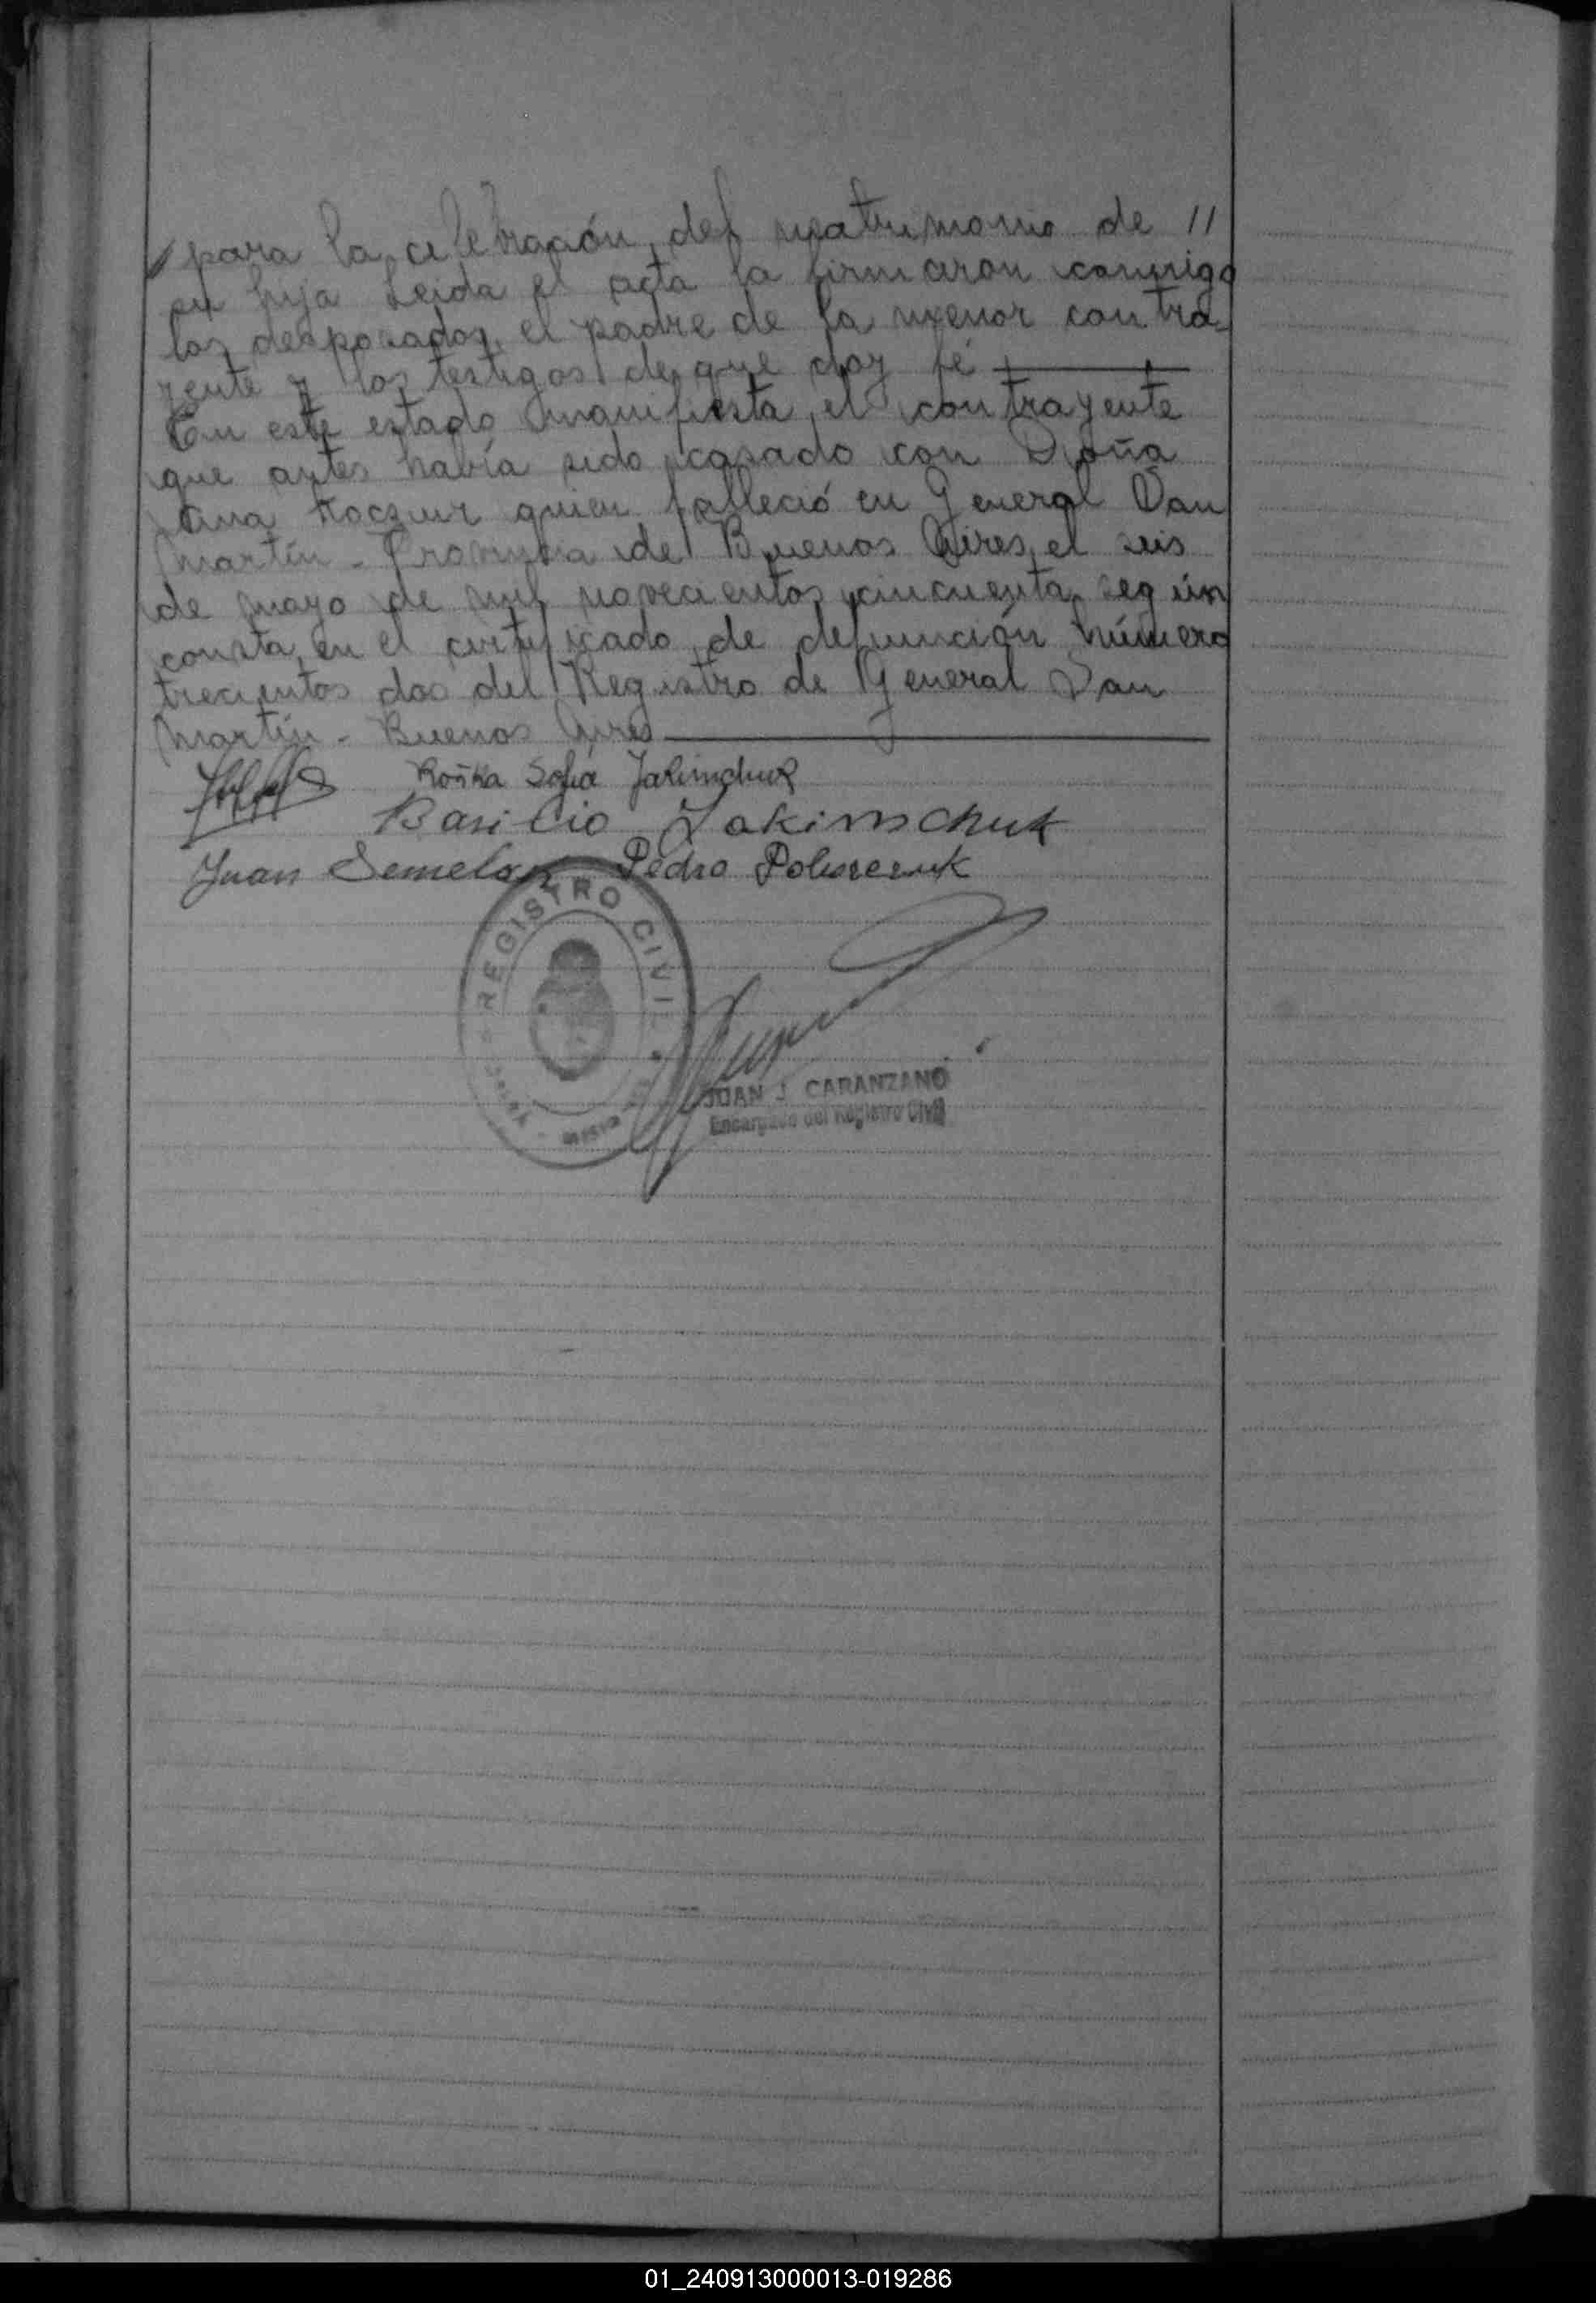 para la celebración del matrimonio de //
su hija Leida el acta la firmaron conmigo
los desposados, el padre de la menor contra-
yente y los testigos de que doy fé
En este estado manifiesta el contrayente
que antes había sido casado con Doña
Ana quien falleció en General San
Martín - Provincia de Buenos Aires, el seis
de mayo de mil novecientos cincuenta según
consta en el certificado de defunción número
trecientos dos del Registro de General San
Martín - Buenos Aires
Sofia Jakimchuk
Basilio Jakimchuk
Juan Pedro
REGISTRO CIVIL
JUAN J. CARANZANO
Encargado del Registro Civil
01_240913000013-019286